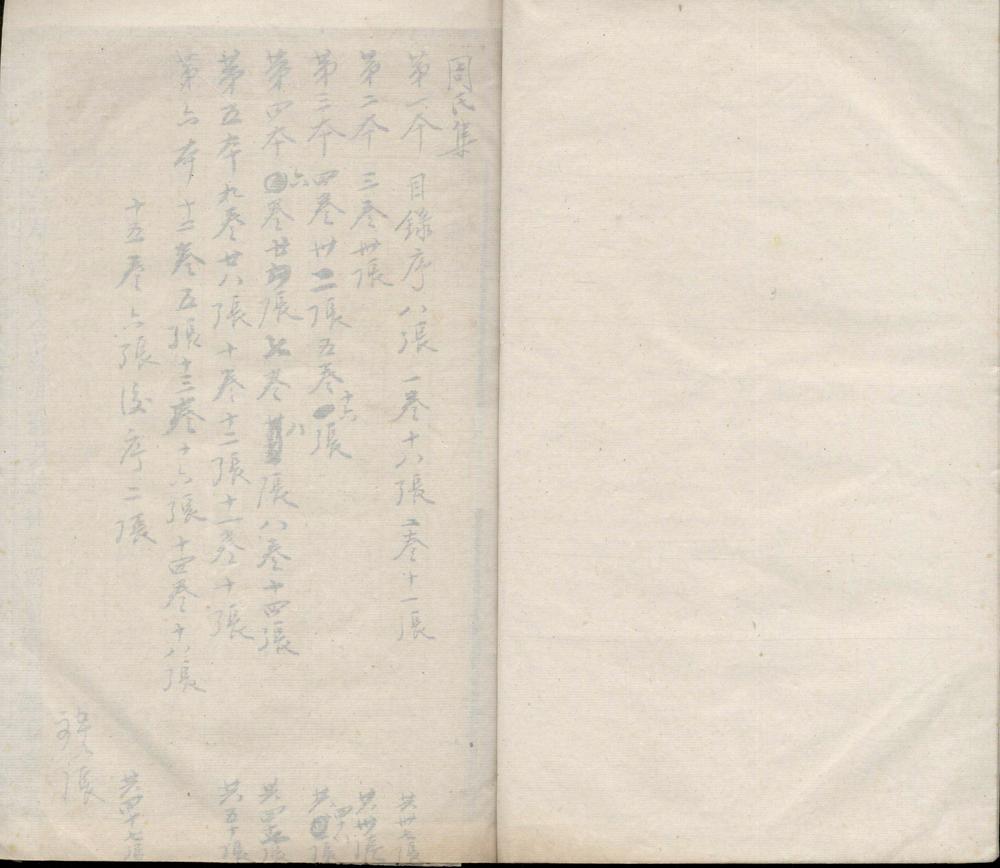 周氏集
第一本 目錄序八張 一卷十八張 二卷十一張 共卅七張
第二本 三卷卅張 共卅張
第三本 四卷卅二張 五卷十六張 共四十八張
第四本 六卷廿張 七卷八張 八卷十四張 共四張
第五本 九卷廿八張 十卷十二張 十一卷十張 共五十張
第六本 十二卷五張 十三卷十六張 十四卷十八張
十五卷六張 後序二張 共四十七張
張